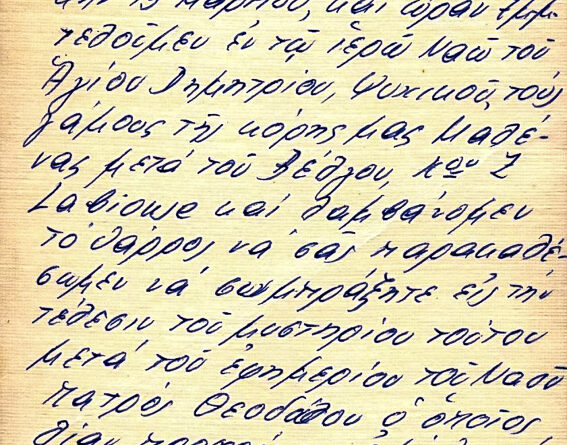 τὴν 15 Μαρτίου, καὶ ὥραν 7μ.μ.
τελοῦμεν ἐν τῷ ἱερῷ Ναῷ τοῦ
Ἁγίου Δημητρίου, Ψυχικοῦ, τοὺς
γάμους τῆς κόρης μας Μαδέ-
νας μετά τοῦ Βέλγου, κου Ζ
Labiowe καὶ λαμβάνομεν
τὸ θάρρος νά σᾶς παρακαλέ-
σωμεν νά συμπράξητε εἰς τὴν
τέλεσιν τοῦ μυστηρίου τούτου
μετά τοῦ ἐφημερίου τοῦ Ναοῦ
πατρὸς Θεοδούλου ὁ ὁποῖος
λίαν